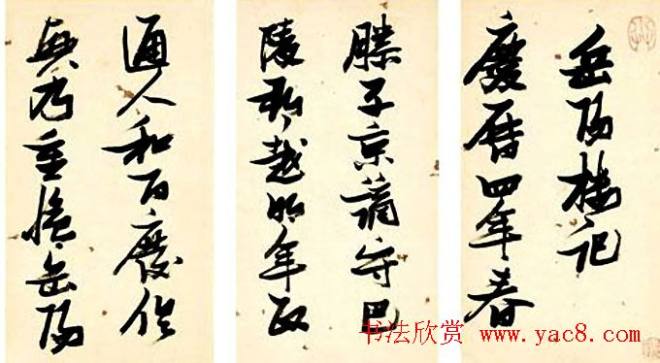 岳陽樓記
慶曆四年春
滕子京謫守巴
陵郡越明年政
通人和百廢俱
興乃重脩岳陽
书法欣赏 www.yac8.com